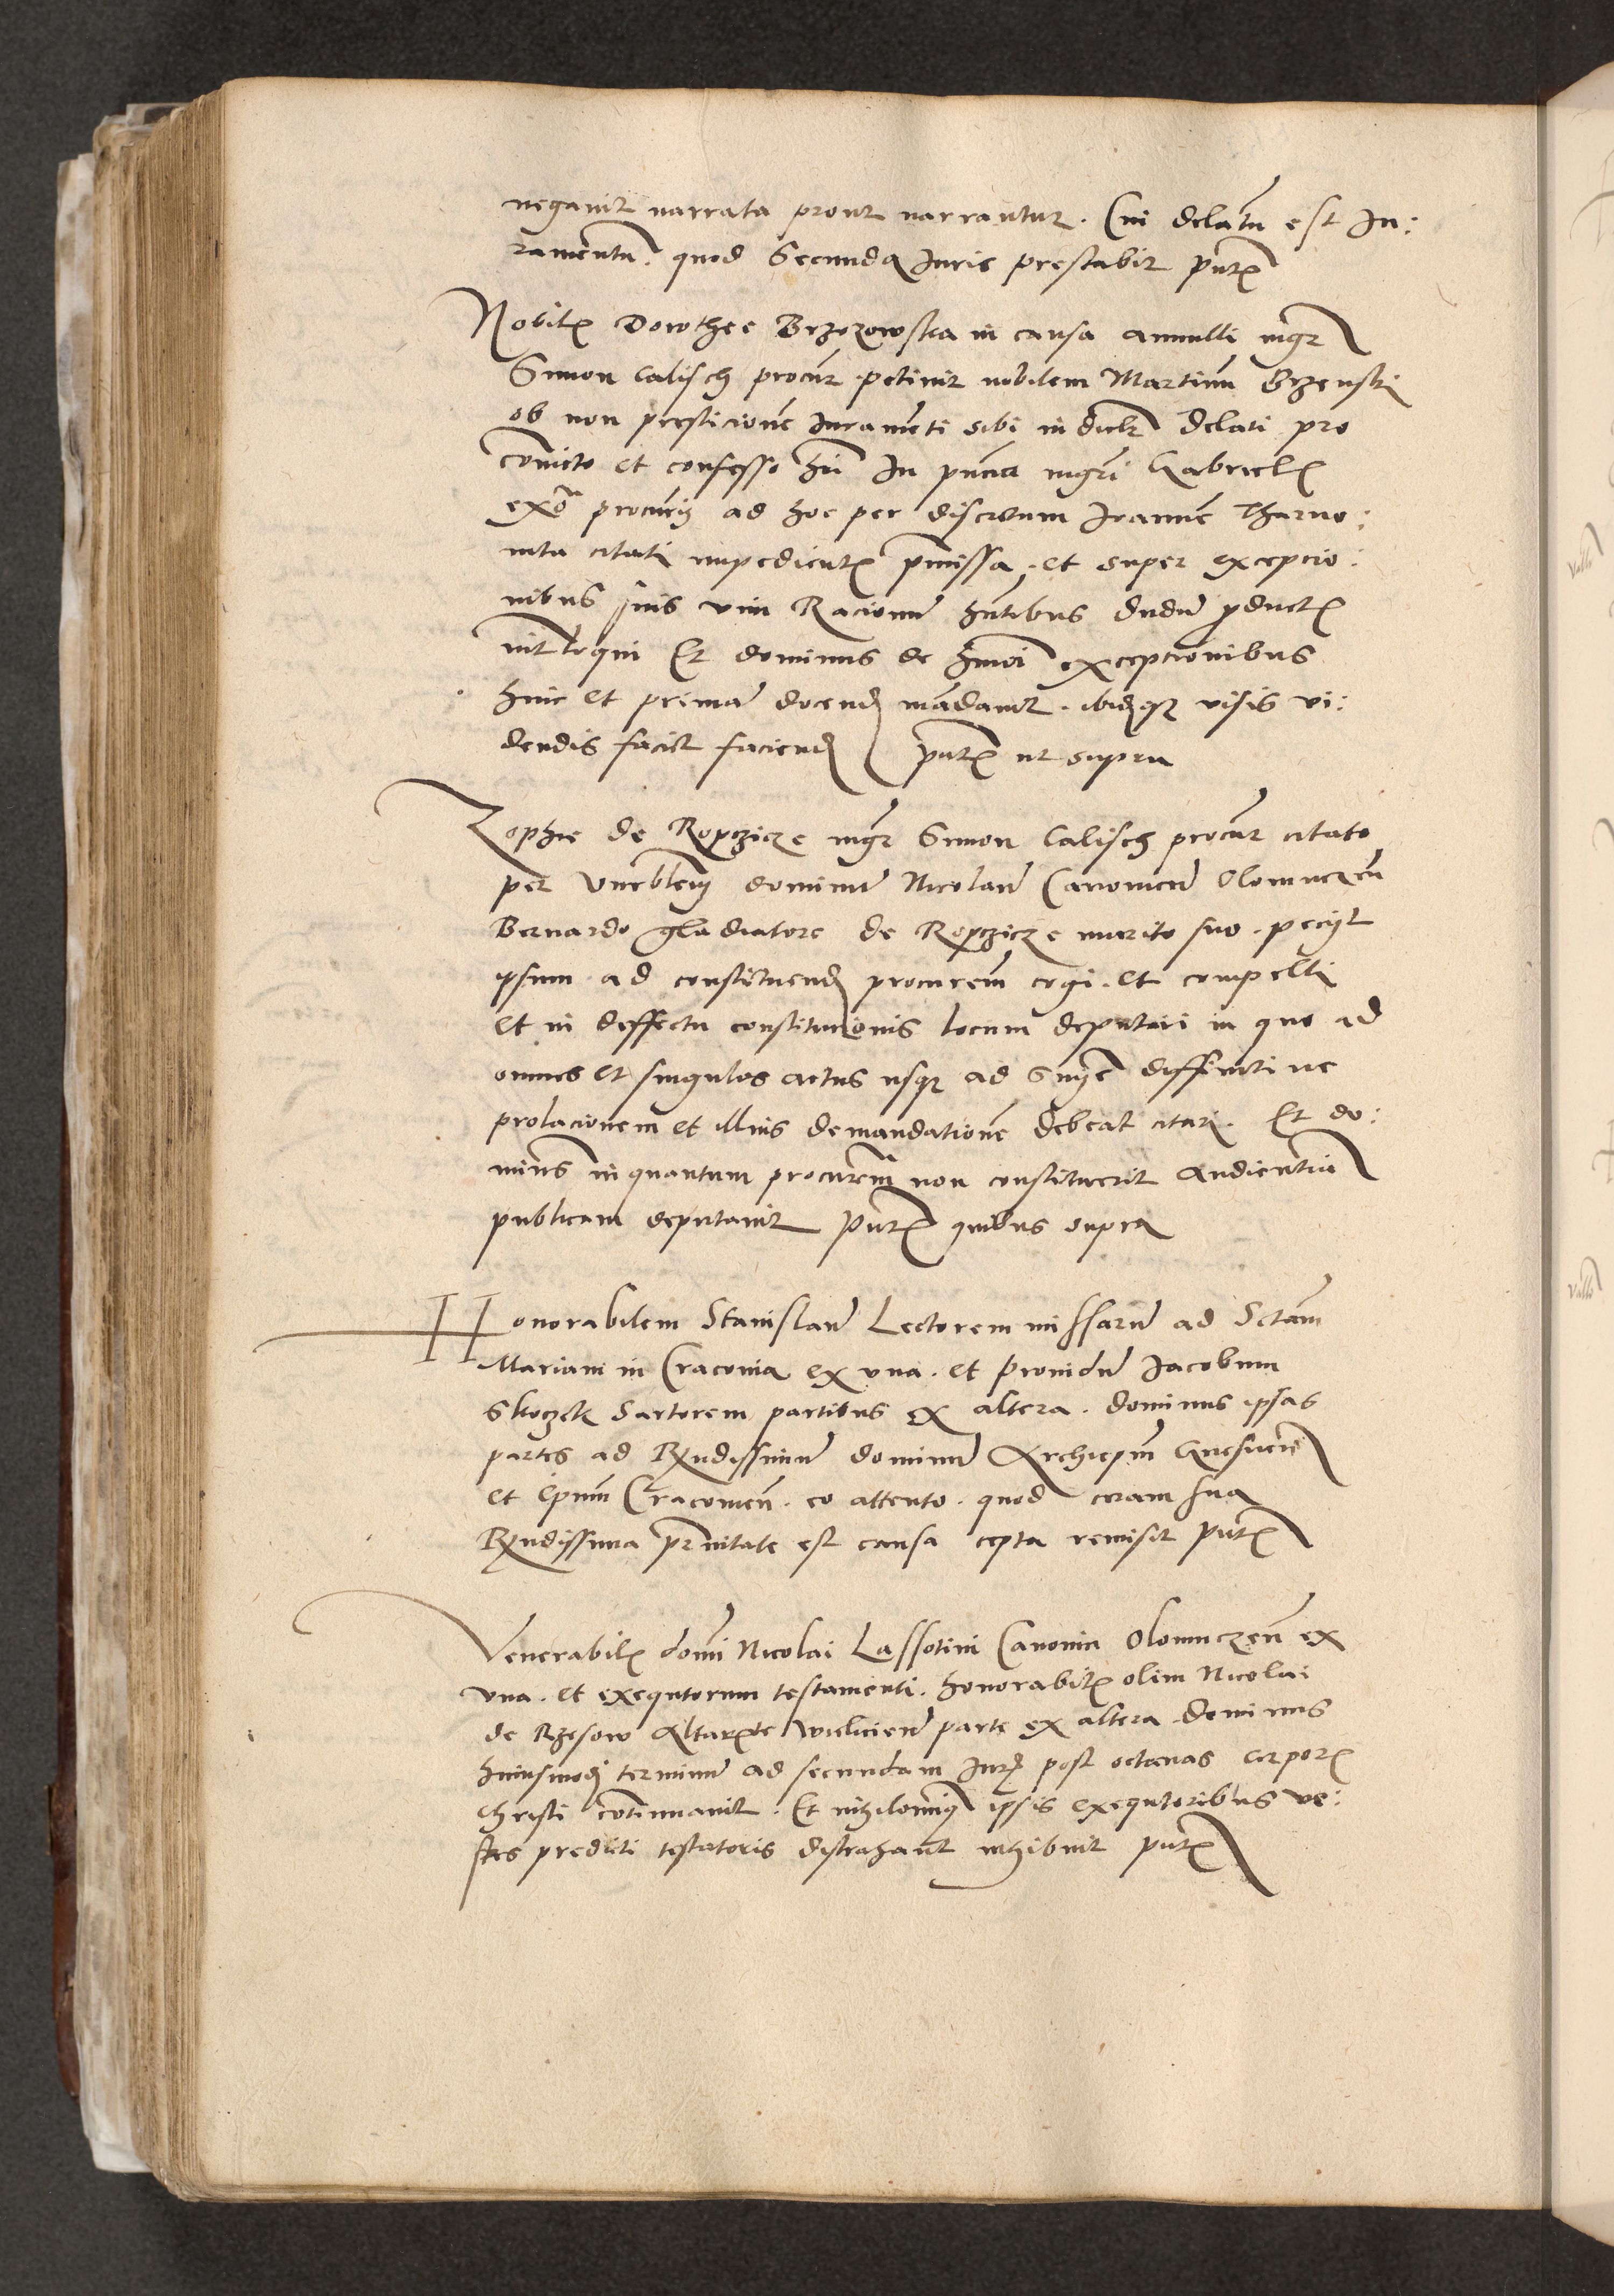 negavit narrata prout narrantur. Cui delatu est Iu:
ramentu. quod Secunda Iuris prestabit pntt
Nobilis Dorothee Brzozowska in causa annulli mgr
Simon Calisch procur petivit nobilem Martinu Brzenski
ob non presticione Iuramenti sibi in dulz delati pro
convicto et confesso hri In pncia mgri Gabrielis
exo procuris ad hoc per discretum Ioanne Tharno:
vita citati impedientis pmissa. et super excepcio:
nibus suis vim Racionu hntibus dudu productis
intloqui Et dominus de hmoi exceptionibus
hinc et prima docend madavit. ibidqz visis vi:
dendis faciet faciend pntt ut supra
Zophie de Ropczicze mgr Simon Calisch procur citato
per Vnerblem dominu Nicolau Canonicu Olomuczen
Bernardo gladiatore de Ropczicze marito suo. peciit
ipsum ad constituend procurem cogi. et compelli
et in deffectu constitucionis locum deputari in quo ad
omnes et singulos actus usqz ad snie diffinitive
prolacionem et illius demandatione debeat citari. Et do:
minus inquantum procurem non constituerit Audientia
publicam deputavit pntt quibus supra
Honorabilem Stanislau Lectorem missaru ad Sctam
Mariam in Cracovia ex una. et providu Iacobum
Skoczek Sartorem partibus ex altera. dominus ipsas
partes ad Rndissimu dominu Archiepm Gnesnen
et Epum Cracovien. eo attento. quod coram sua
Rndissima prnitate est causa cepta remisit pntt
Venerabilis domi Nicolai Lassotini Canonici Olomuczen ex
una. et exequtorum testamenti. honorabilis olim Nicolai
de Rzesow Altariste wielicien parte ex altera. dominus
huiusmodi terminu ad secundam Iuris post octavas corporis
christi continuavit. Et nihilominus ipsis exequtoribus ve:
stes predicti testatoris distrahant inhibuit pntt